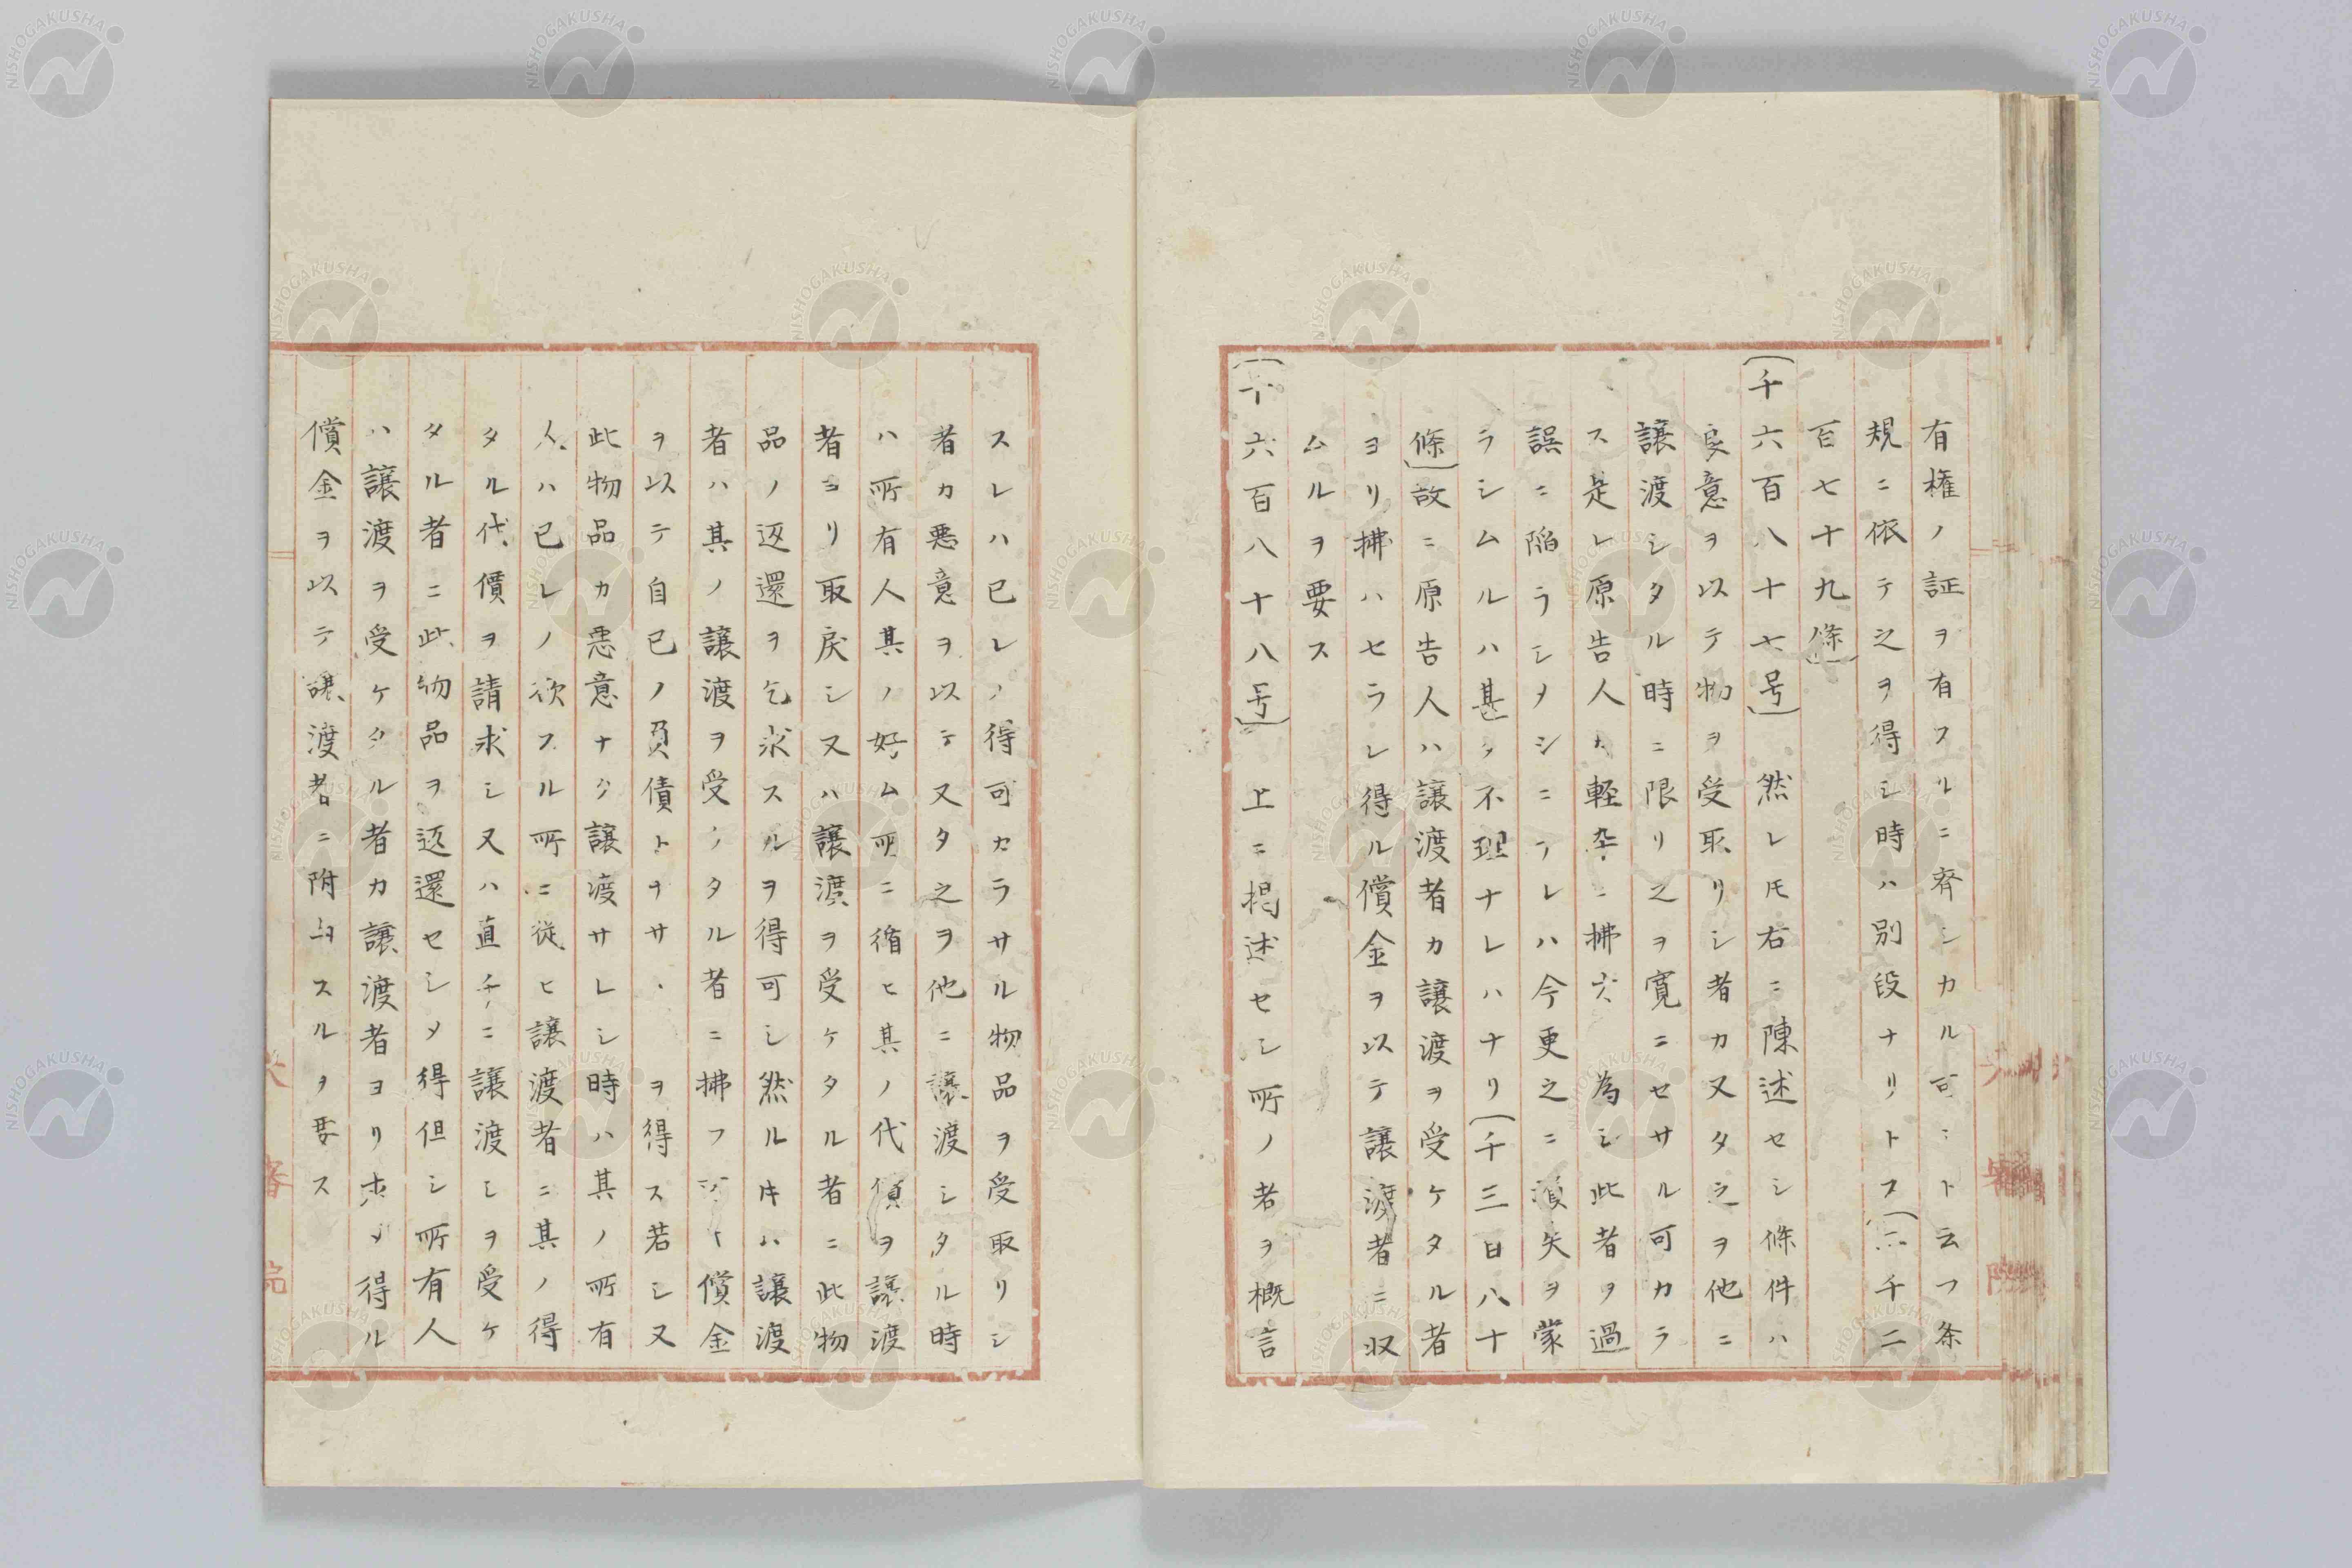 有権ノ証ヲ有スルニ齊シカル可シト云フ条
規ニ依テ之ヲ得シ時ハ別段ナリトス(二千二
百七十九條)
(千六百八十七号) 然レ𪜈右ニ陳述セシ條件ハ
良意ヲ以テ物ヲ受取リシ者カ又タ之ヲ他ニ
譲渡シタル時ニ限リ之ヲ寛ニセサル可カラ
ス是レ原告人カ軽卒ニ拂方為シ此者ヲ過
誤ニ陥ラシメシニテレハ今更之ニ損失ヲ蒙
ラシムルハ甚タ不理ナレハナリ(千三百八十
條)故ニ原告人ハ譲渡者カ譲渡ヲ受ケタル者
ヨリ拂ハセラレ得ル償金ヲ以テ譲渡者ニ収
ムルヲ要ス
(千六百八十八号) 上ニ掲述セシ所ノ者ヲ概言
スレハ已レノ得可カラサル物品ヲ受取リシ
者カ悪意ヲ以テ又タ之ヲ他ニ譲渡シタル時
ハ所有人其ノ好ム所ニ循ヒ其ノ代價ヲ譲渡
者ヨリ取戻シ又ハ譲渡ヲ受ケタル者ニ此物
品ノ返還ヲ乞求スルヲ得可シ然ル片ハ譲渡
者ハ其ノ譲渡ヲ受ケタル者ニ拂フ可キ償金
ヲ以テ自已ノ負債トナサヽヲ得ス若シ又
此物品カ悪意ナク譲渡サレシ時ハ其ノ所有
人ハ已レノ欲スル所ニ従ヒ譲渡者ニ其ノ得
タル代價ヲ請求シ又ハ直チニ譲渡シヲ受ケ
タル者ニ此物品ヲ返還セシメ得但シ所有人
ハ譲渡ヲ受ケタル者カ譲渡者ヨリ求メ得ル
償金ヲ以テ譲渡者ニ附与スルヲ要ス
大審院
NISHOGAKUSHA